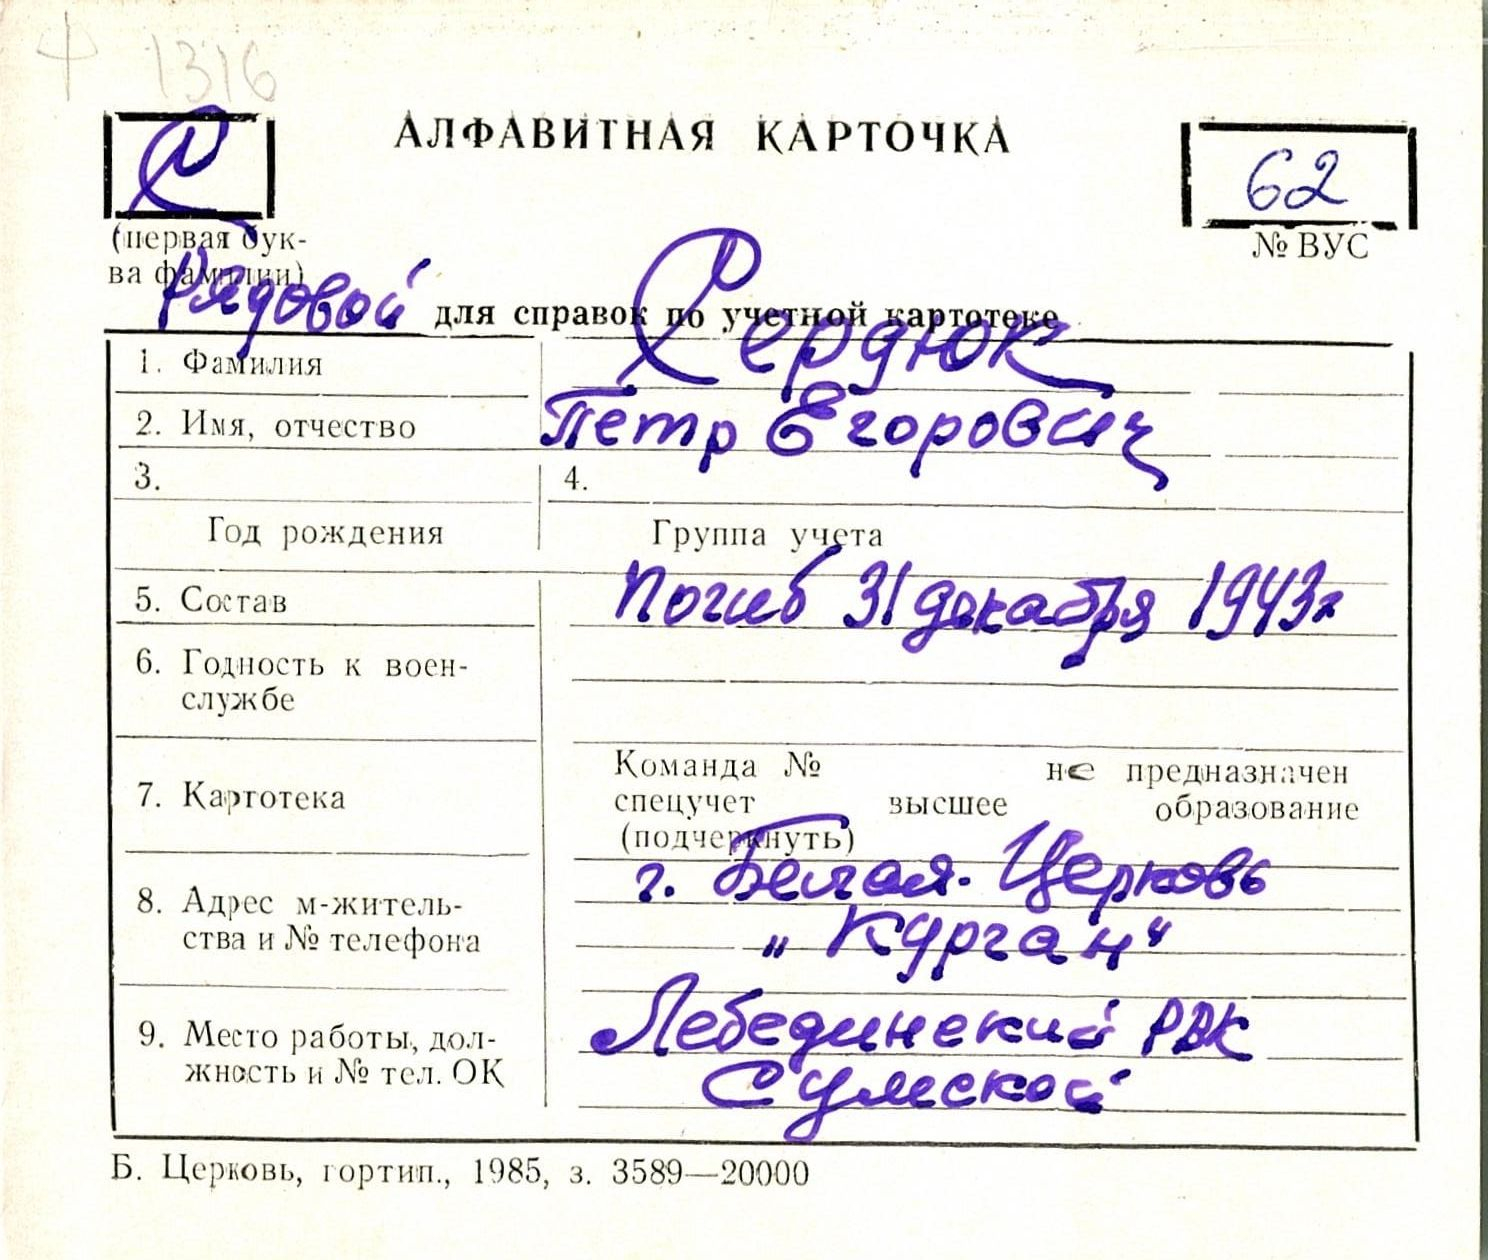 1316
С
АЛФАВИТНАЯ КАРТОЧКА
62
(первая бук-
ва фамилии)
№ ВУС
Рядовой
для справок по учетной картотеке
1. Фамилия Сердюк
2. Имя, отчество Петр Егорович
3. 4.
Год рождения Группа учета
5. Состав Погиб 31 декабря 1943г
6. Годность к воен-
службе
Команда № не предназначен
7. Картотека спецучет высшее образование
(подчеркнуть)
г. Белая-Церковь
8. Адрес м-житель-
ства и № телефона „Курган“
9. Место работы, дол- Лебединский РВК
жность и № тел. ОК Сумской
Б. Церковь, гортип., 1985, з. 3589—20000